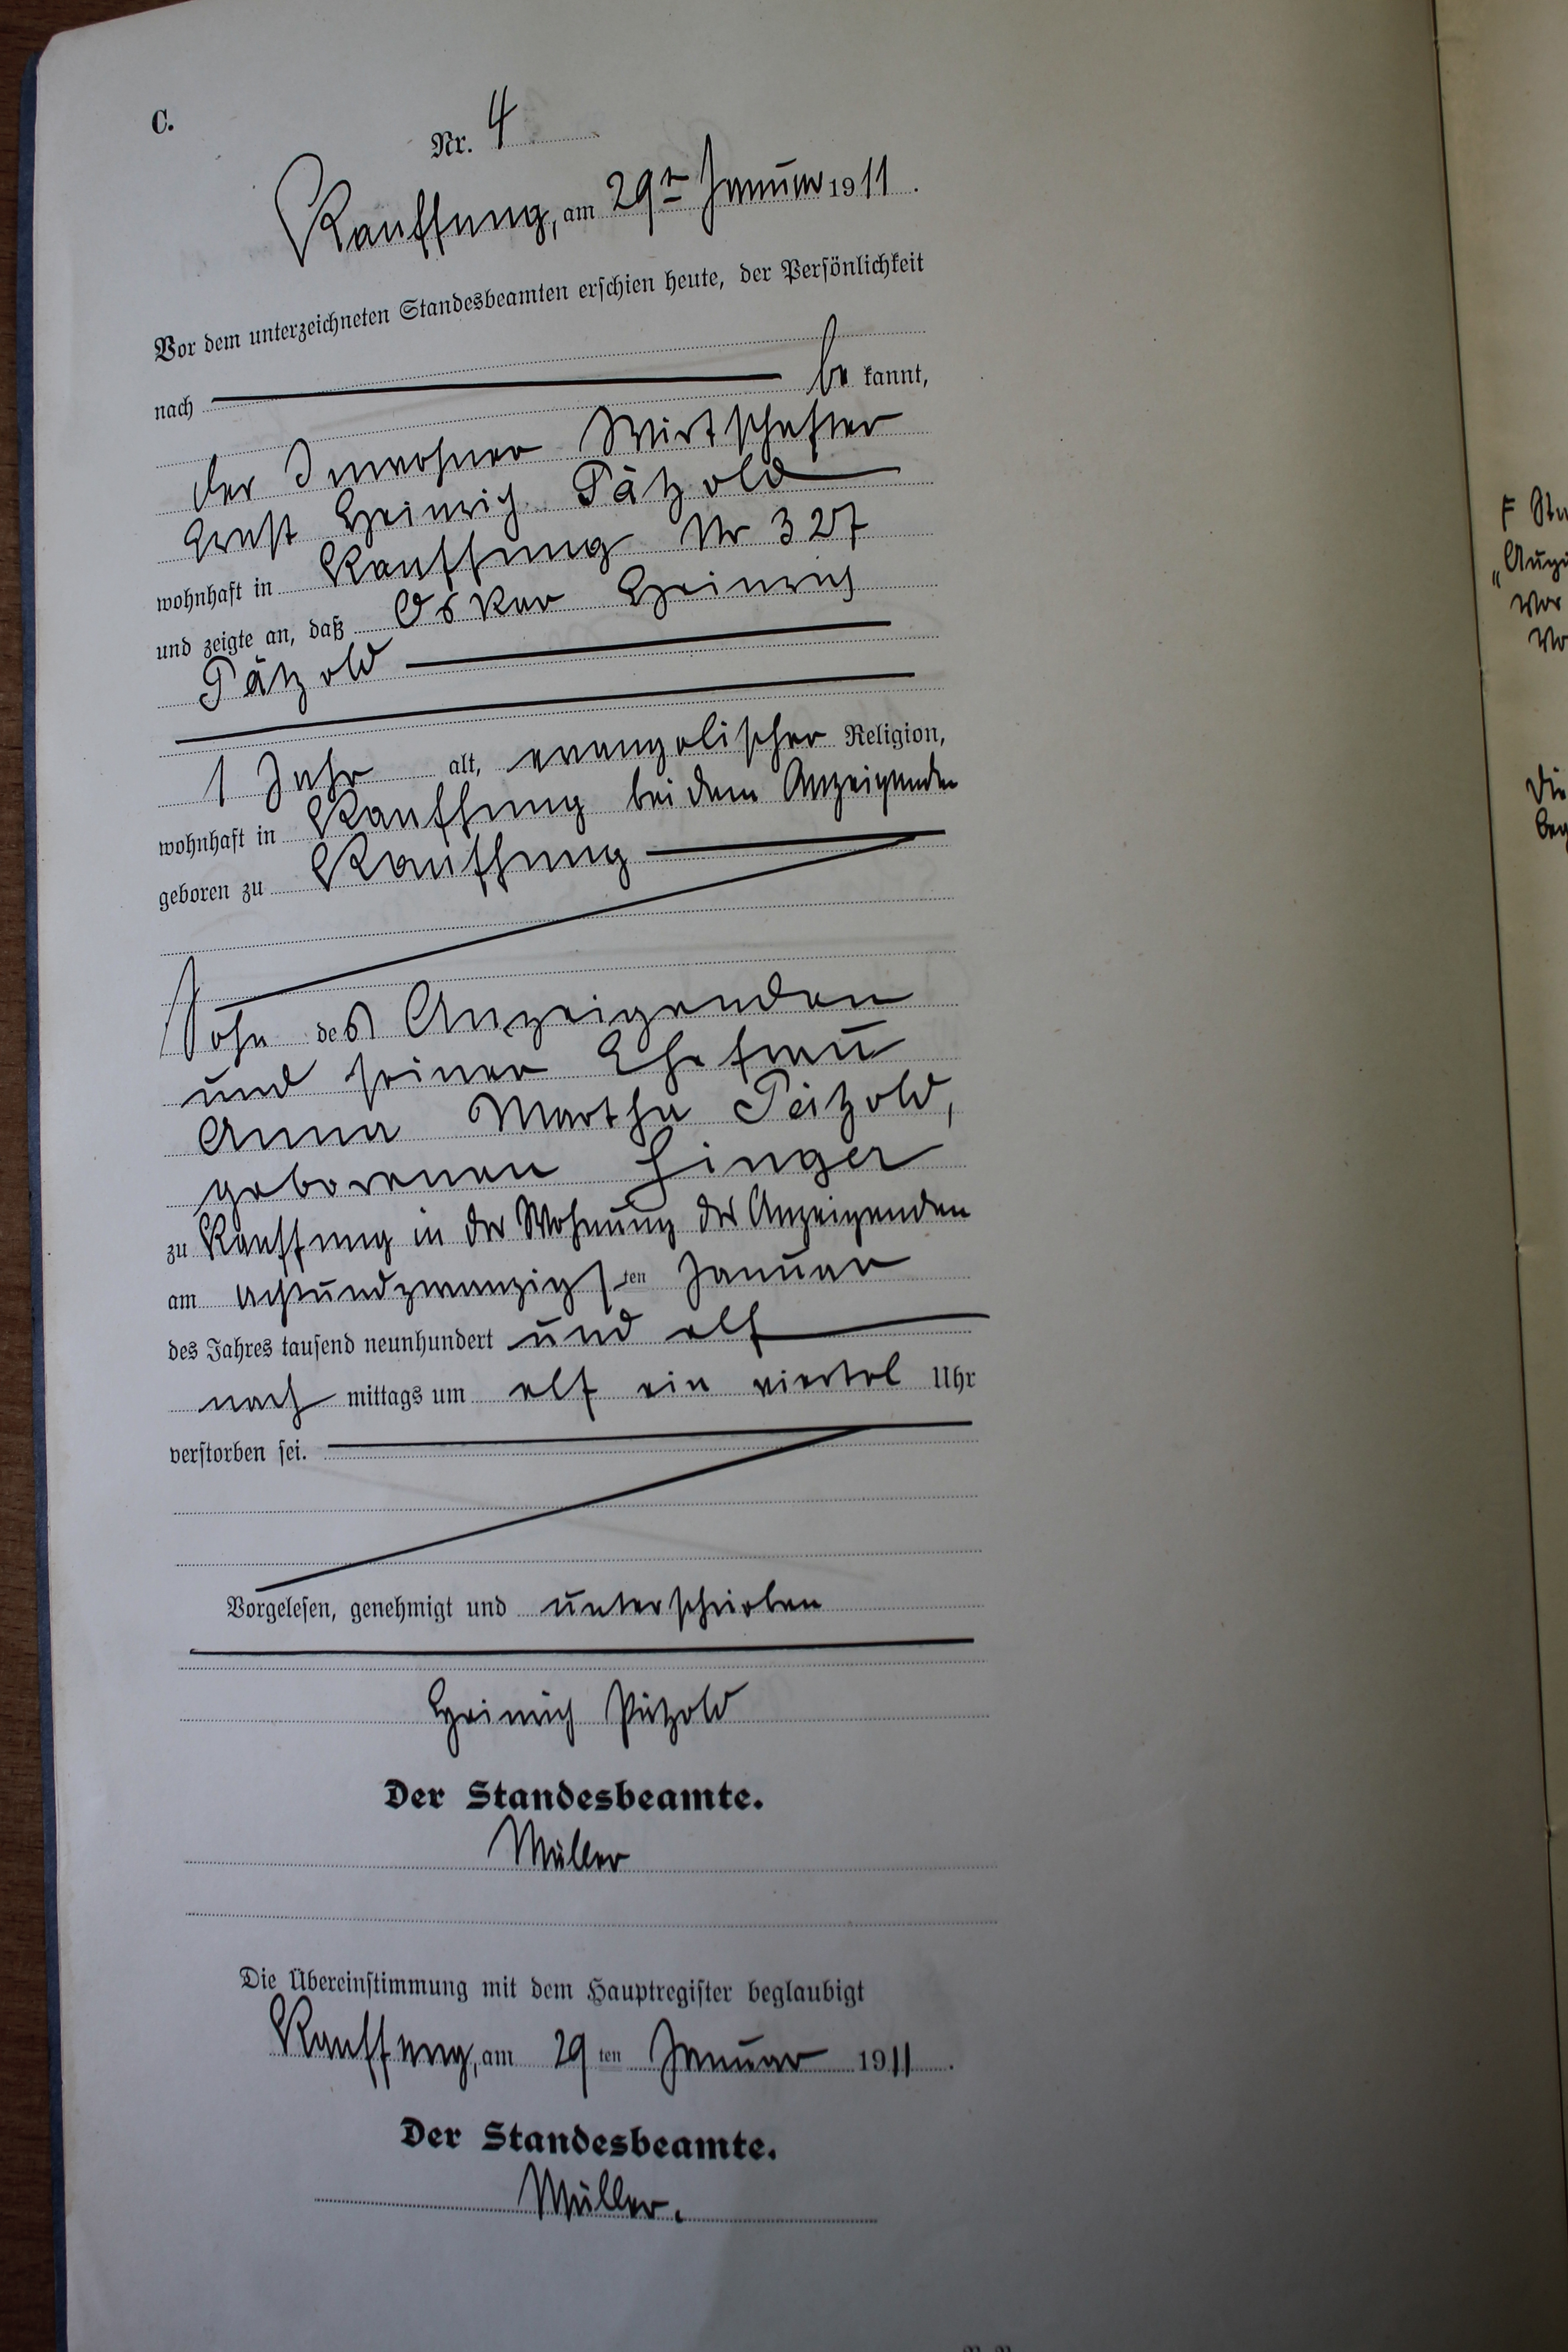 C.
Nr. 4
Kauffung, am 29ten Januar 1911.
Vor dem unterzeichneten Standesbeamten erschien heute, der Persönlichkeit
nach be kannt,
der Inwohner Wirtschafter
Ernst Heinrich Pätzold
wohnhaft in Kauffung Nr 327
und zeigte an, daß Oskar Heinrich
Pätzold
1 Jahr alt, evangelischer Religion,
wohnhaft in Kauffung bei dem Anzeigenden
geboren zu Kauffung
Sohn des Anzeigenden
und seiner Ehefrau
Anna Martha Pätzold,
geborenen Linger
zu Kauffung in der Wohnung des Anzeigenden
am achtundzwanzigsten Januar
des Jahres tausend neunhundert und elf
nach mittags um elf ein viertel Uhr
verstorben sei.
Vorgelesen, genehmigt und unterschrieben
Heinrich Pätzold
Der Standesbeamte.
Müller
Die Übereinstimmung mit dem Hauptregister beglaubigt
Kauffung, am 29ten Januar 1911.
Der Standesbeamte.
Müller.